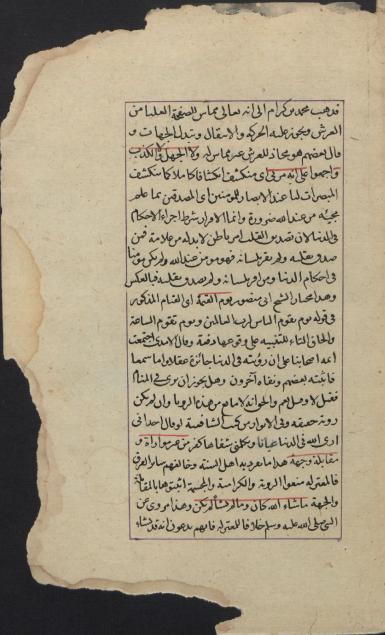 فذهب محمد بن كرام الى انه تعالى مماس للصفحة العليا من
العرش ويجوز عليه الحركة والانتقال وتبدل الجهات و
قال بعضهم هو محاذ للعرش غير مماس له ولا الجهل ولا الكذب
واجمعوا على انه مرئى اى منكشف انكشافا كاملا كما ينكشف
المبصرات لنا عند الابصار للمؤمنين اى المصدقين بما علم
مجيئه من عند الله ضرورة وانما الاقرار شرط اجراء الاحكام
فى الدنيا لان تصديق القلب امر باطن لابد له من علامة فمن
صدق بقلبه ولم يقر بلسانه فهو مؤمن عند الله ولم يكن مؤمنا
فى احكام الدنيا ومن اقر بلسانه ولم يصدق بقلبه فبالعكس
وهذا مختار الشيخ ابى منصور يوم القيمة اى القيام المذكور
فى قوله يوم يقوم الناس لرب العالمين ويوم تقوم الساعة
والحاق التاء للتنبيه على وقوعها دفعة وقال الامدى اجتمعت
ائمة اصحابنا على ان رؤيته فى الدنيا جائزة عقلا واما سمعا
فاثبته بعضهم ونفاه آخرون وهل يجوز ان يرى فى المنام
فقيل لا وقيل نعم والحق انه لا مانع من هذه الرؤيا وان لم يكن
رؤية حقيقة وفى الانوار من كتب الشافعية لو قال احد انى
ارى الله فى الدنيا عيانا ويكلمنى شفاها كفر من غير موازاة و
مقابلة وجهة هذا ما تفرد به اهل السنة وخالفهم سائر الفرق
فالمعتزلة منعوا الرؤية والكرامية والمجسمة اثبتوها بالمقابلة
والجهة ما شاء الله كان وما لم يشأ لم يكن وهذا مروى عن
النبى صلى الله عليه وسلم خلافا للمعتزلة فانهم يدعون انه قد يشاء